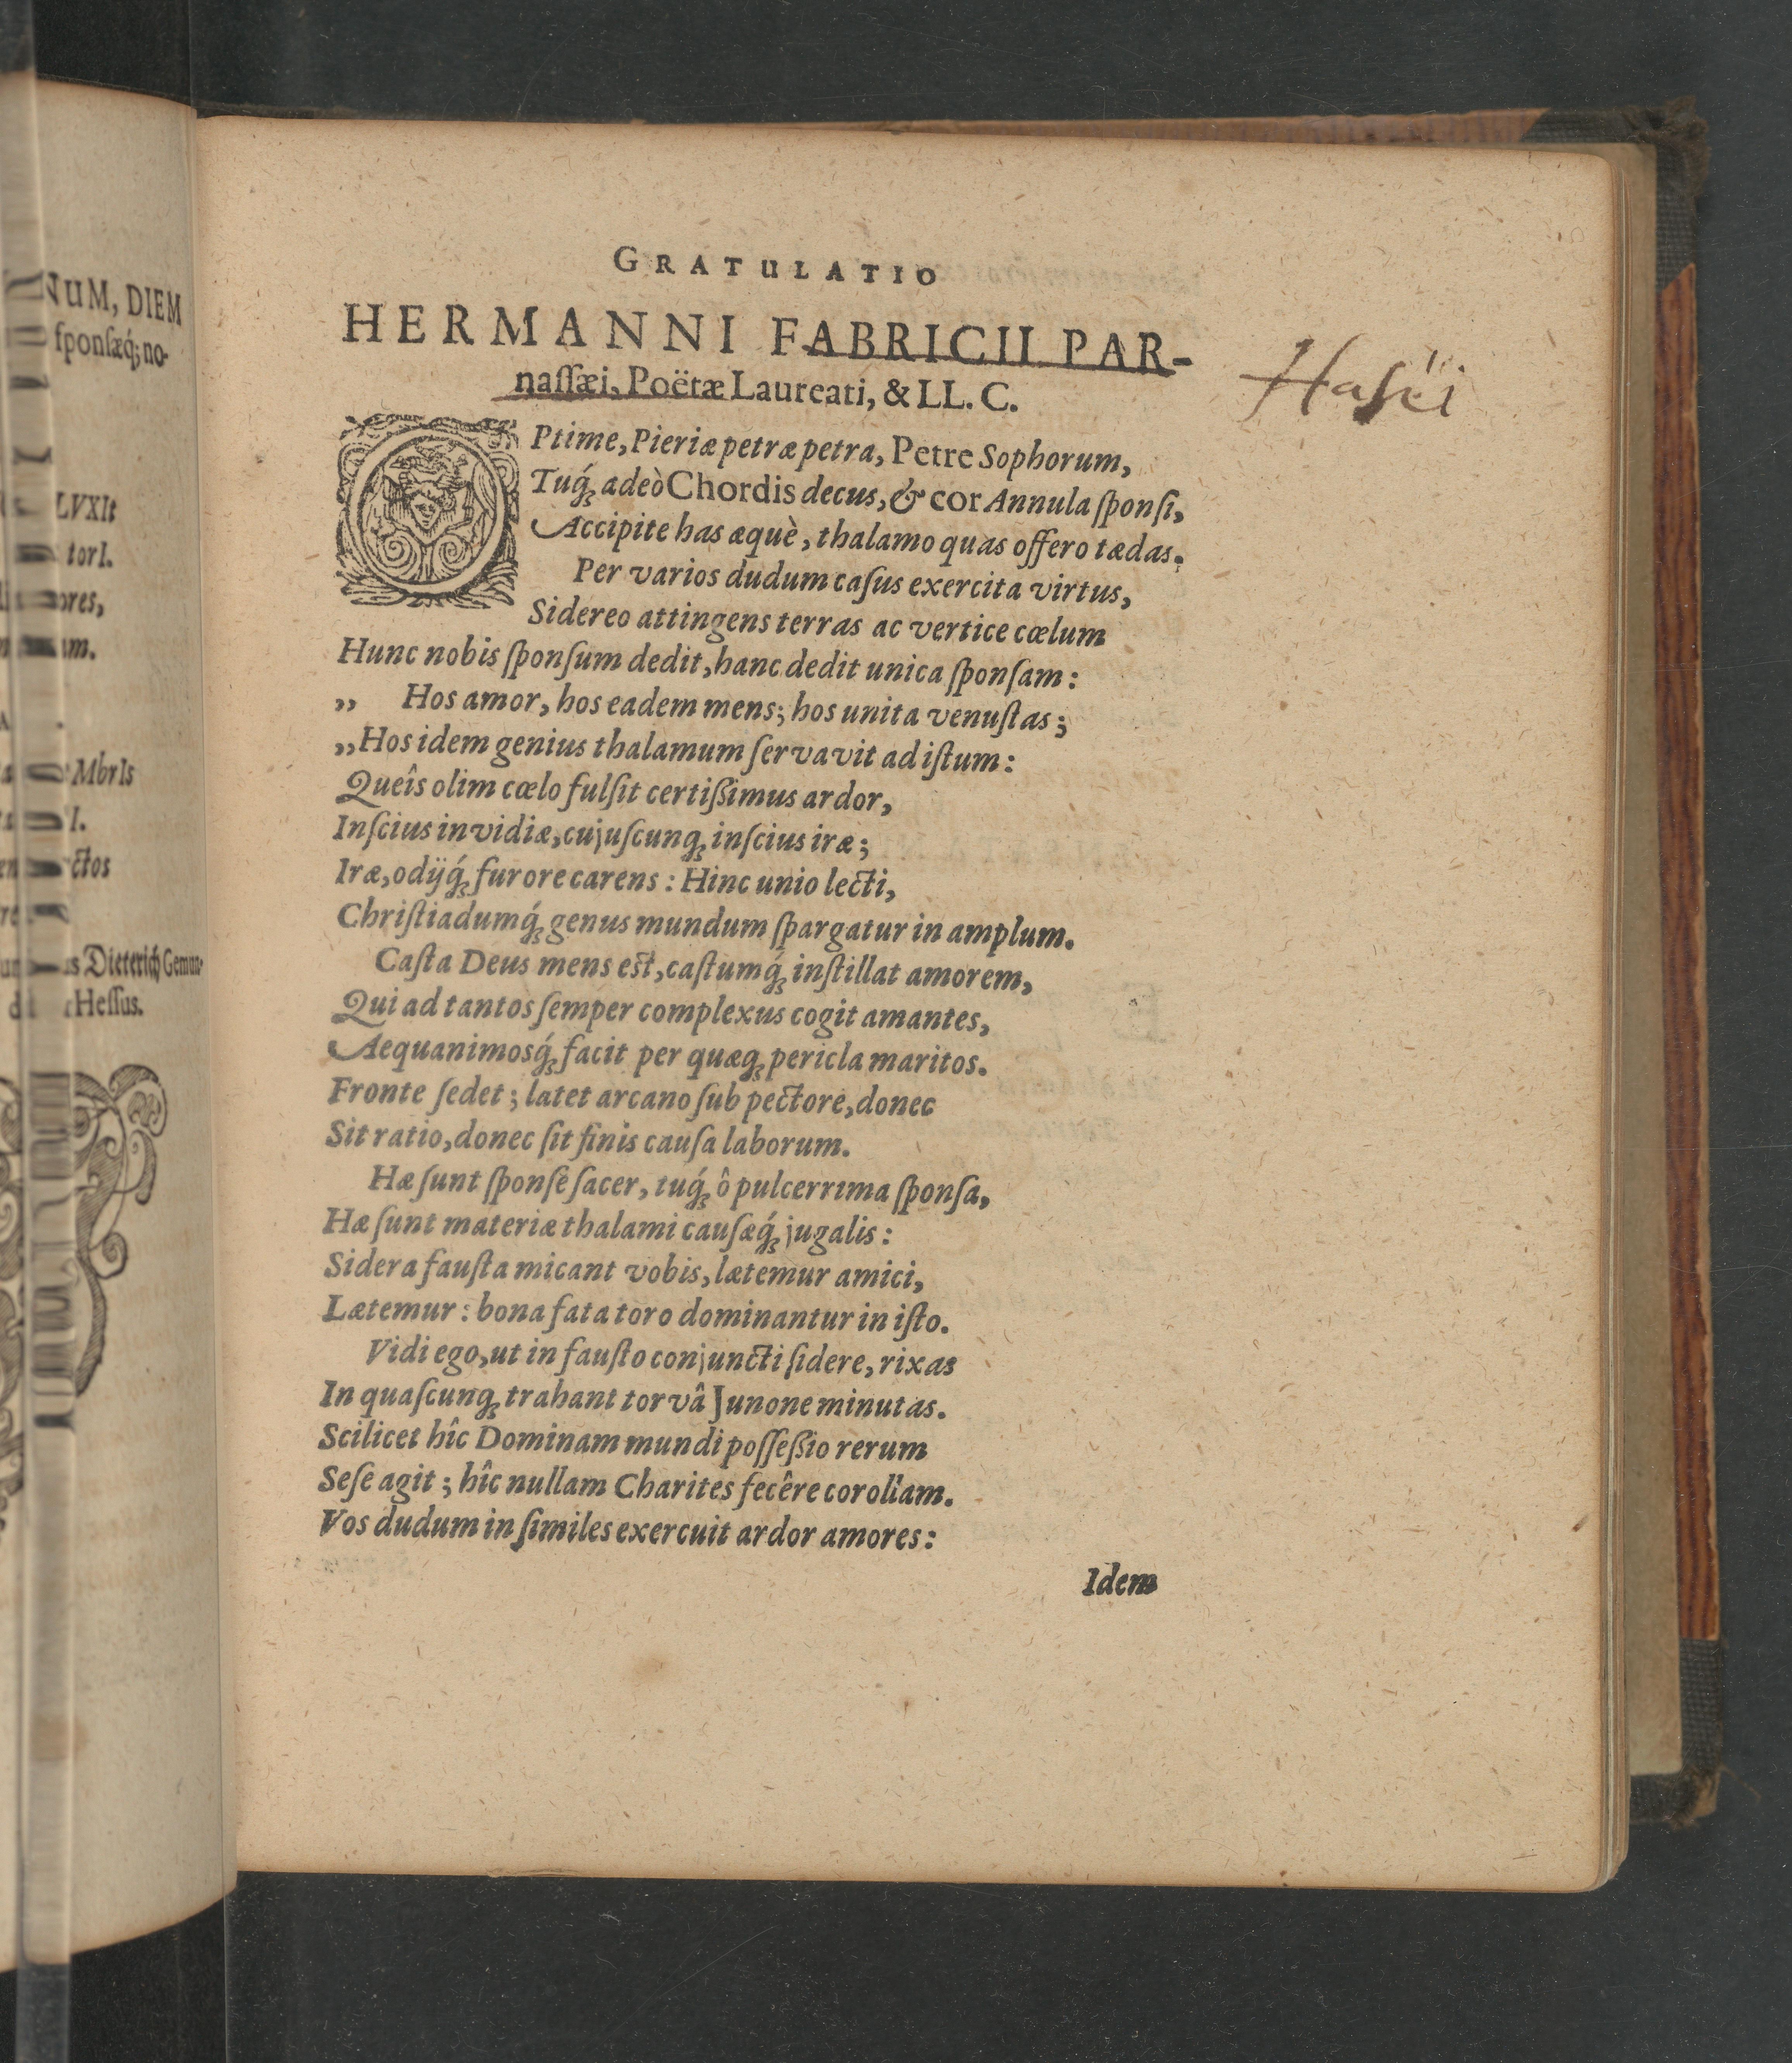 NUM, DIEM
ſponſæq́; no-
LVXIt
torI.
ores,
am.
MbrIs
I.
ctos
Dieterich Gemun-
Heſſus.
GRATULATIO
HERMANNI FABRICII PAR-
naſſæi, Poëtæ Laureati, & LL. C.
Haſæi
OPtime, Pieriæ petræ petra, Petre Sophorum,
Tuq́; adeò Chordis decus, & cor Annula ſponſi,
Accipite has æquè, thalamo quas offero tædas.
Per varios dudum caſus exercita virtus,
Sidereo attingens terras ac vertice cœlum
Hunc nobis ſponſum dedit, hanc dedit unica ſponſam:
„ Hos amor, hos eadem mens; hos unita venuſtas;
„Hos idem genius thalamum ſervavit ad iſtum:
Queîs olim cœlo fulſit certißimus ardor,
Inſcius invidiæ, cujuſcunq; inſcius iræ;
Iræ, odijq́; furore carens: Hinc unio lecti,
Chriſtiadumq́; genus mundum ſpargatur in amplum.
Caſta Deus mens eſt, caſtumq́; inſtillat amorem,
Qui ad tantos ſemper complexus cogit amantes,
Aequanimosq́; facit per quæq; pericla maritos.
Fronte ſedet; latet arcano ſub pectore, donec
Sit ratio, donec ſit finis cauſa laborum.
Hæ ſunt ſponſe ſacer, tuq́; ô pulcerrima ſponſa,
Hæ ſunt materiæ thalami cauſæq́; jugalis:
Sidera fauſta micant vobis, lætemur amici,
Lætemur: bona fata toro dominantur in iſto.
Vidi ego, ut in fauſto conjuncti ſidere, rixas
In quaſcunq; trahant torvâ Junone minutas.
Scilicet hîc Dominam mundi poſſeßio rerum
Seſe agit; hîc nullam Charites fecêre corollam.
Vos dudum in ſimiles exercuit ardor amores:
Idem